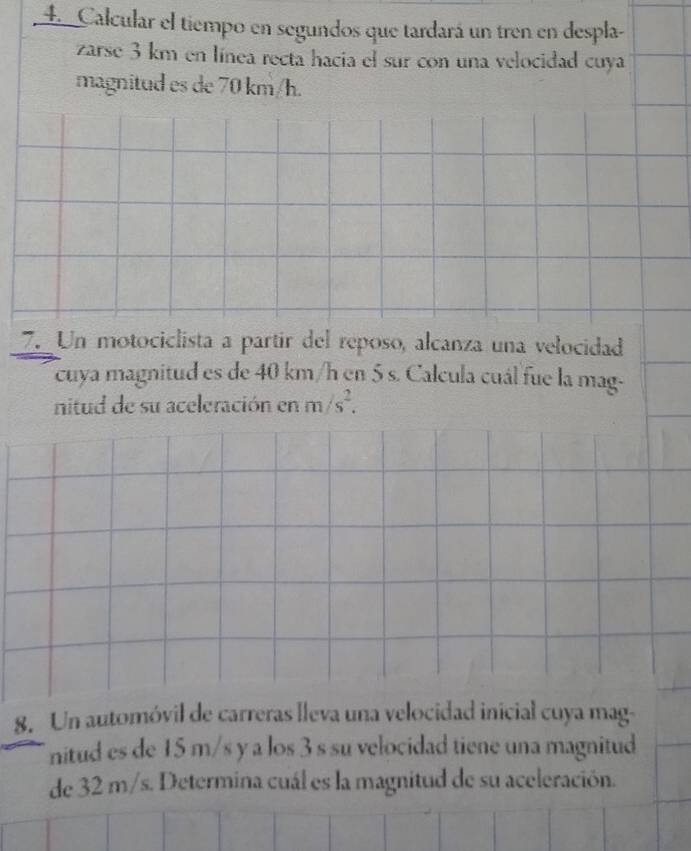 4. Calcular el tiempo en segundos que tardará un tren en despla-
zarse 3 km en línea recta hacia el sur con una velocidad cuya
magnitud es de 70 km/h.
7. Un motociclista a partir del reposo, alcanza una velocidad
cuya magnitud es de 40 km/h en 5 s. Calcula cuál fue la mag-
nitud de su aceleración en m/s².
8. Un automóvil de carreras lleva una velocidad inicial cuya mag-
nitud es de 15 m/s y a los 3 s su velocidad tiene una magnitud
de 32 m/s. Determina cuál es la magnitud de su aceleración.